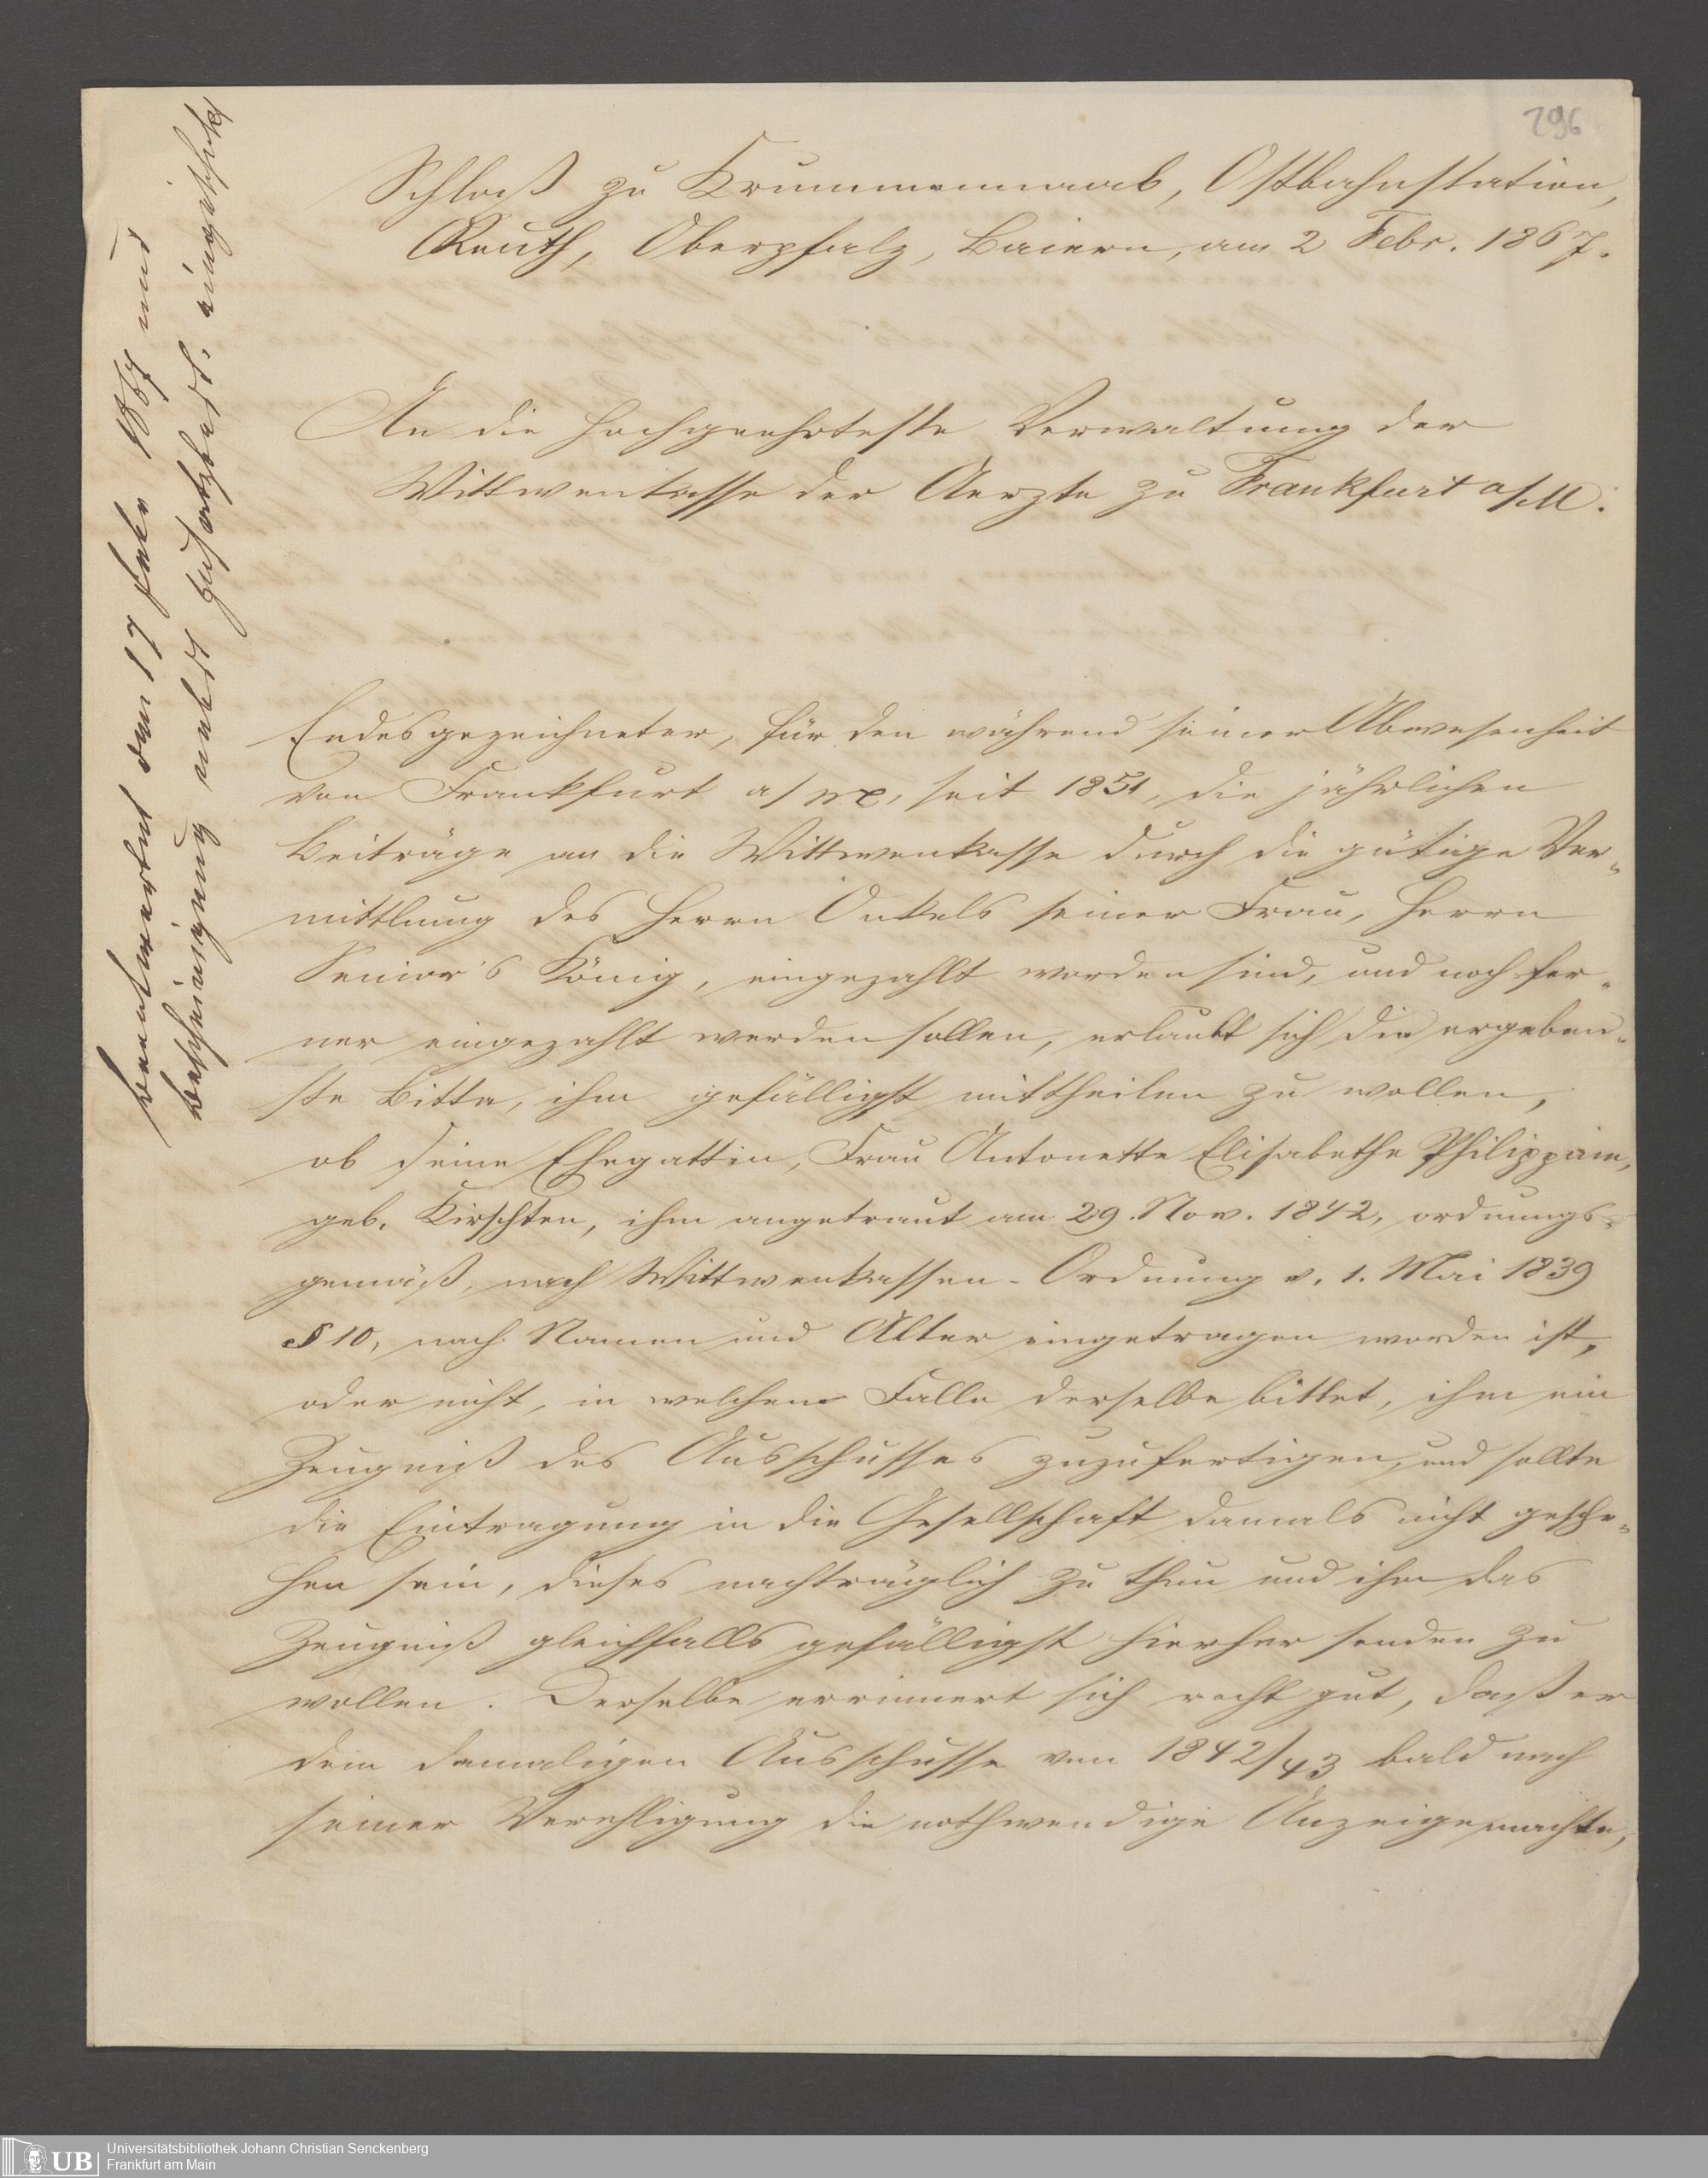 296
Schloß zu Krummennaab, Ostbahnstation,
Reuth, Oberpfalz, Baiern, am 2 Febr. 1867.
An die hochgeehrteste Verwaltung der
Wittwenkasse der Aerzte zu Frankfurt a/M.
Endesgezeichneter, für den während seiner Abwesenheit
von Frankfurt a/M, seit 1851, die jährlichen
Beiträge an die Wittwenkasse durch die gütige Ver-
mittlung des Herrn Onkels seiner Frau, Herrn
Senior's König, eingezahlt worden sind, und noch fer-
ner eingezahlt werden sollen, erlaubt sich die ergeben-
ste Bitte, ihm gefälligst mittheilen zu wollen,
ob seine Ehegattin, Frau Antonette Elisabethe Philippine,
geb. Kirschten, ihm angetraut am 29. Nov. 1842, ordnungs-
gemäß, nach Wittwenkassen-Ordnung v. 1. Mai 1839
§ 10, nach Namen und Alter eingetragen worden ist,
oder nicht, in welchem Falle derselbe bittet, ihm ein
Zeugniß des Ausschusses zuzufertigen, und sollte
die Eintragung in die Gesellschaft damals nicht gesche-
hen sein, dieses nachträglich zu thun und ihm das
Zeugniß gleichfalls gefälligst hierher senden zu
wollen. Derselbe errinnert sich recht gut, daß er
dem damaligen Ausschusse von 1842/43 bald nach
seiner Verehligung die nothwendige Anzeige machte,
beantwortet den 17 Febr 1867 und
Bescheinigung nebst eingeschickt
Universitätsbibliothek Johann Christian Senckenberg
Frankfurt am Main
UB